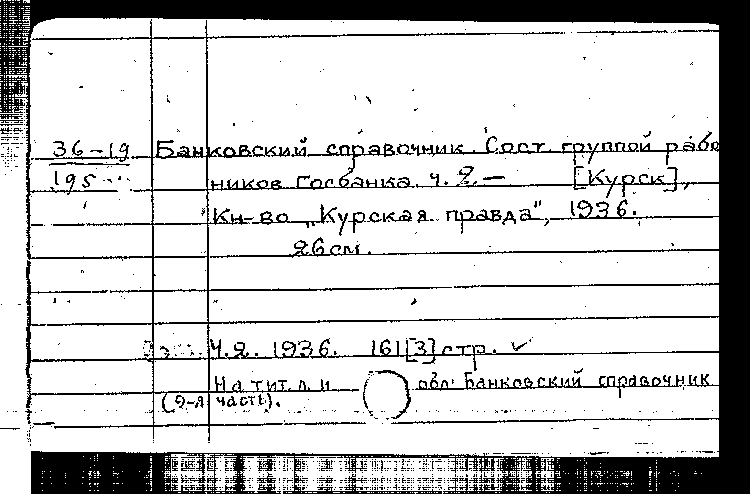 36-19 Банковский справочник. Сост. группой рабо
195 ников Госбанка. Ч. 2. — [Курск],
Кн-во „Курская правда", 1936.
26 см.
Ч. 2. 1936. 161[3] стр. ✓
На тит. л. и обл: Банковский справочник
(2-я часть).